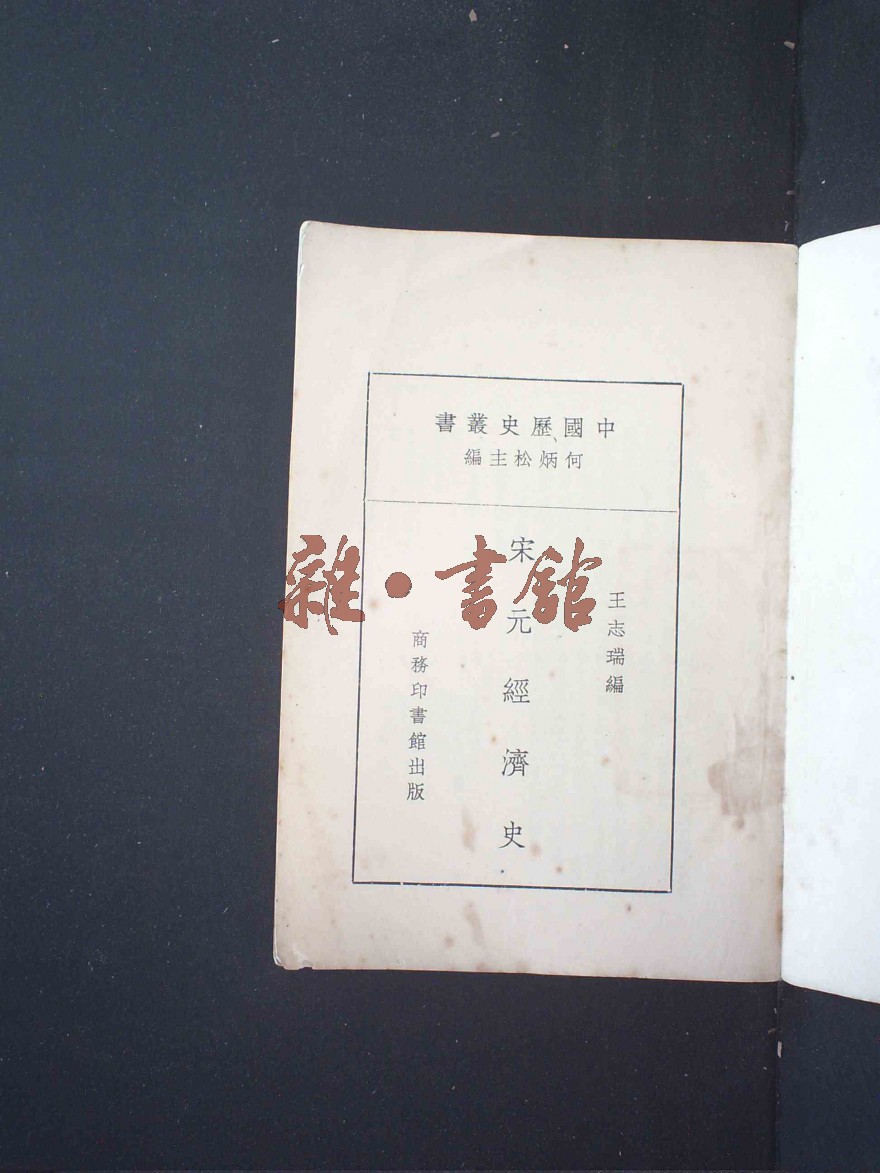 中國歷史叢書
何炳松主編
王志瑞編
宋元經濟史
商務印書館出版
雜·書館